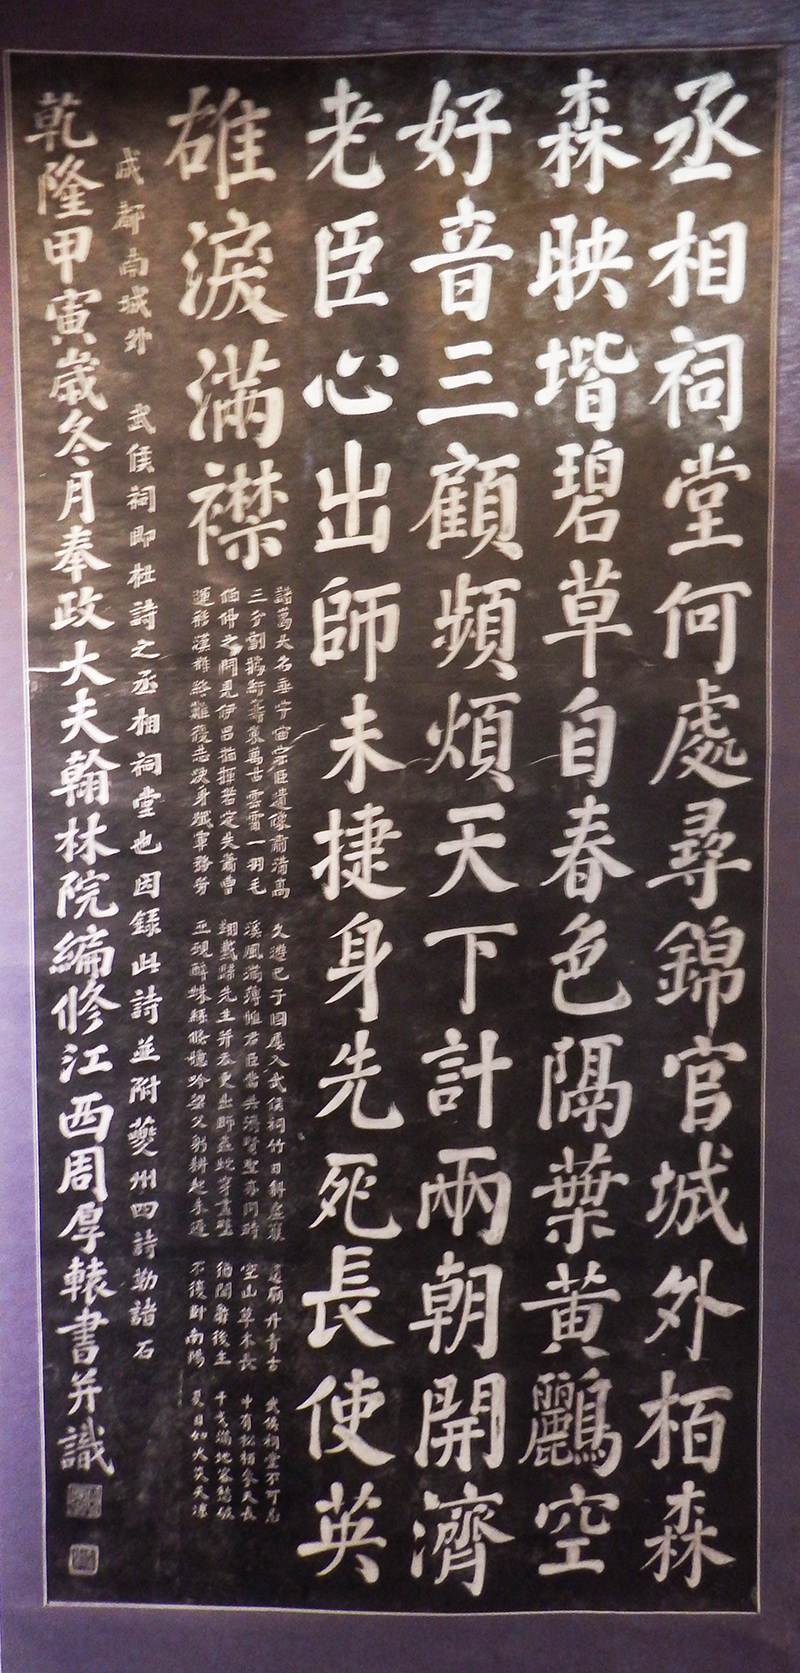 丞相祠堂何處尋錦官城外栢森
森映堦碧草自春色隔葉黃鸝空
好音三顧頻煩天下計兩朝開濟
老臣心出師未捷身先死長使英
雄淚滿襟
諸葛大名垂宇宙宗臣遺像肅清高
三分割據紆籌策萬古雲霄一羽毛
伯仲之間見伊呂指揮若定失蕭曹
運移漢祚終難復志決身殲軍務勞
久遊巴子國屢入武侯祠竹日斜虛寢
溪風滿薄帷君臣當共濟賢聖亦同時
翊戴歸先主并吞更出師蟲蛇穿畫壁
巫覡醉蛛絲憶吟梁父躬耕起未遲
遺廟丹青古
空山草木長
猶聞辭後主
不復卧南陽
武侯祠堂不可忘
中有松柏參天長
干戈滿地客愁破
日如火炎天涼
成都南城外 武侯祠即杜詩之丞相祠堂也因錄此詩並附夔州四詩勒諸石
乾隆甲寅歲冬月奉政大夫翰林院編修江西周厚轅書并識